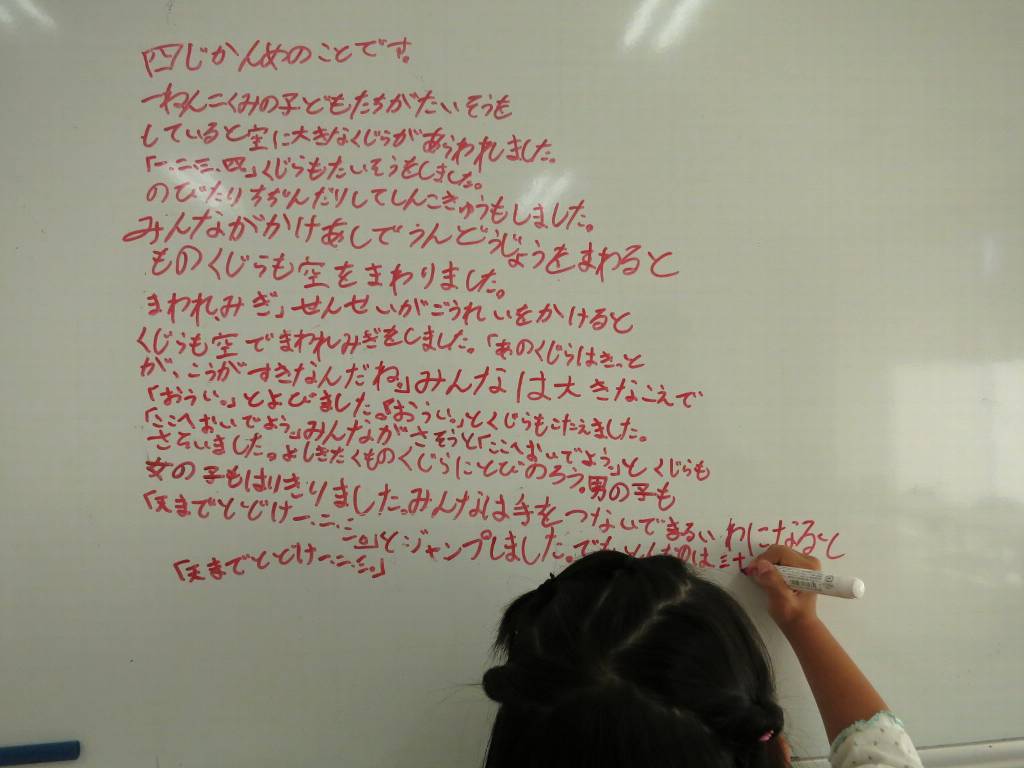 四じかんめのことです。
一ねん二くみの子どもたちがたいそうを
していると空に大きなくじらがあらわれました。
「一、二、三、四。」くじらもたいそうをしました。
のびたりちぢんだりしてしんこきゅうもしました。
みんながかけあしでうんどうじょうをまわると
ものくじらも空をまわりました。
まわれ、みぎ」せんせいがごうれいをかけると
くじらも空でまわれみぎをしました。「あのくじらはきっと
が、こうがすきなんだね。」みんなは大きなこえで
「おうい。」とよびました。「おうい。」とくじらもこたえました。
「ここへおいでよう。」みんながさそうと「ここへおいでよう。」とくじらも
さそいました。よしきたくものくじらにとびのろう。男の子も
女の子もはりきりました。みんなは手をつないでまるいわになると
「天までとどけ一、二、三。」とジャンプしました。でもとんだのは三十
「天までとどけ一、二、三。」